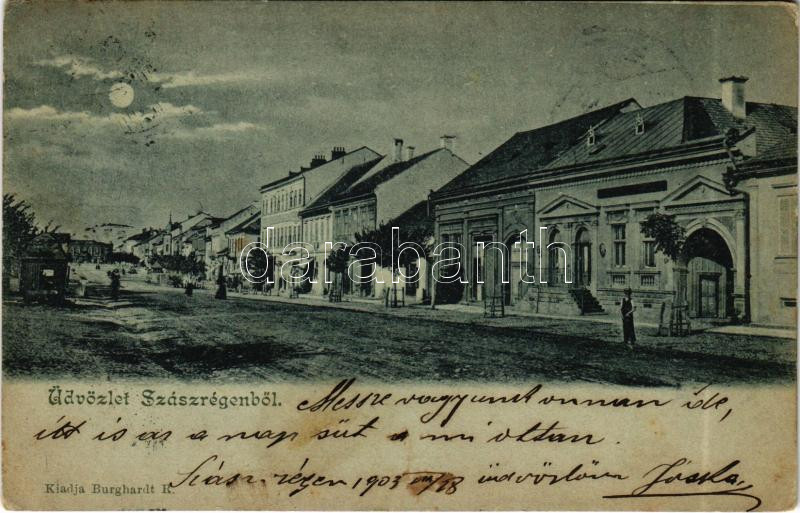 darabanth
Üdvözlet Szászrégenből.
Messze vagyunk onnan ide,
itt is az a nap süt a mi ottan.
Szász-régen 1903 VIII/18 üdvözlöm Jóska
Kiadja Burghardt R.